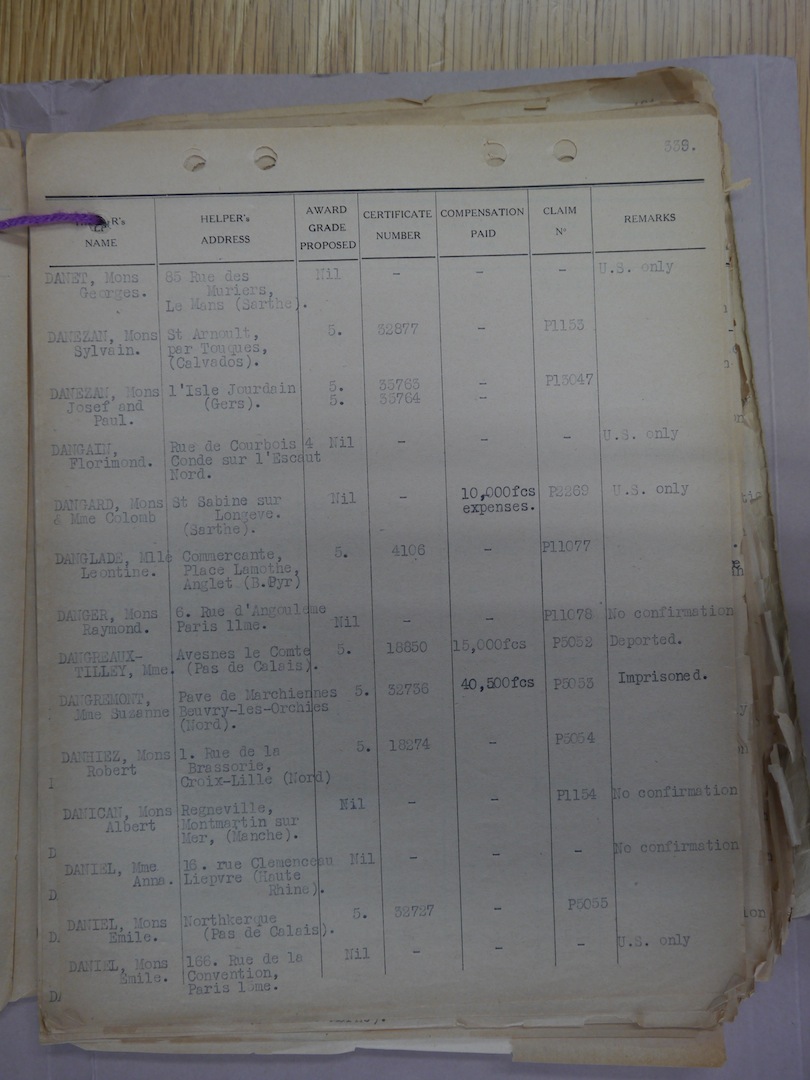 339.
HELPER's HELPER's AWARD CERTIFICATE COMPENSATION CLAIM REMARKS
NAME ADDRESS GRADE NUMBER PAID Nº
PROPOSED
DANET, Mons 85 Rue des Nil - - - U.S. only
Georges. Muriers,
Le Mans (Sarthe).
DANEZAN, Mons St Arnoult, 5. 32877 - P1153
Sylvain. par Touques,
(Calvados).
DANEZAN, Mons l'Isle Jourdain 5. 35763 - P13047
Josef and (Gers). 5. 35764 -
Paul.
DANGAIN, Rue de Courbois 4 Nil - - - U.S. only
Florimond. Conde sur l'Escaut
Nord.
DANGARD, Mons St Sabine sur Nil - 10,000fcs P2269 U.S. only
& Mme Colomb Longeve. expenses.
(Sarthe).
DANGLADE, Mlle Commercante, 5. 4106 - P11077
Leontine. Place Lamothe,
Anglet (B.Pyr)
DANGER, Mons 6. Rue d'Angouleme Nil - - P11078 No confirmation
Raymond. Paris 11me.
DANGREAUX- Avesnes le Comte 5. 18850 15,000fcs P5052 Deported.
TILLEY, Mme. (Pas de Calais).
DANGREMONT, Pave de Marchiennes 5. 32736 40,500fcs P5053 Imprisoned.
Mme Susanne Beuvry-les-Orchies
(Nord).
DANHIEZ, Mons 1. Rue de la 5. 18274 - P5054
Robert Brasserie,
Croix-Lille (Nord)
DANICAN, Mons Regneville, Nil - - P1154 No confirmation
Albert Montmartin sur
Mer, (Manche).
DANIEL, Mme 16. rue Clemenceau Nil - - - No confirmation
Anna. Liepvre (Haute
Rhine).
DANIEL, Mons Northkerque 5. 32727 - P5055
Emile. (Pas de Calais).
DANIEL, Mons 166. Rue de la Nil - - - U.S. only
Emile. Convention,
Paris 15me.